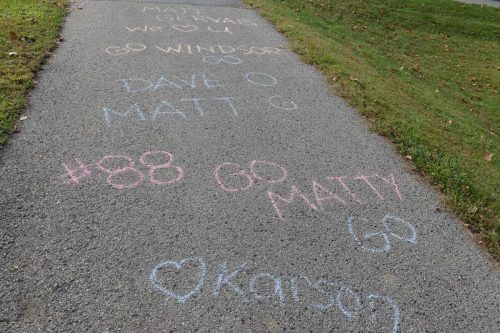 GERVAIS
We ♡ U
GO WINDSOR
GO
DAVE O
MATT G
#88 GO MATTY
GO
♡ Karson